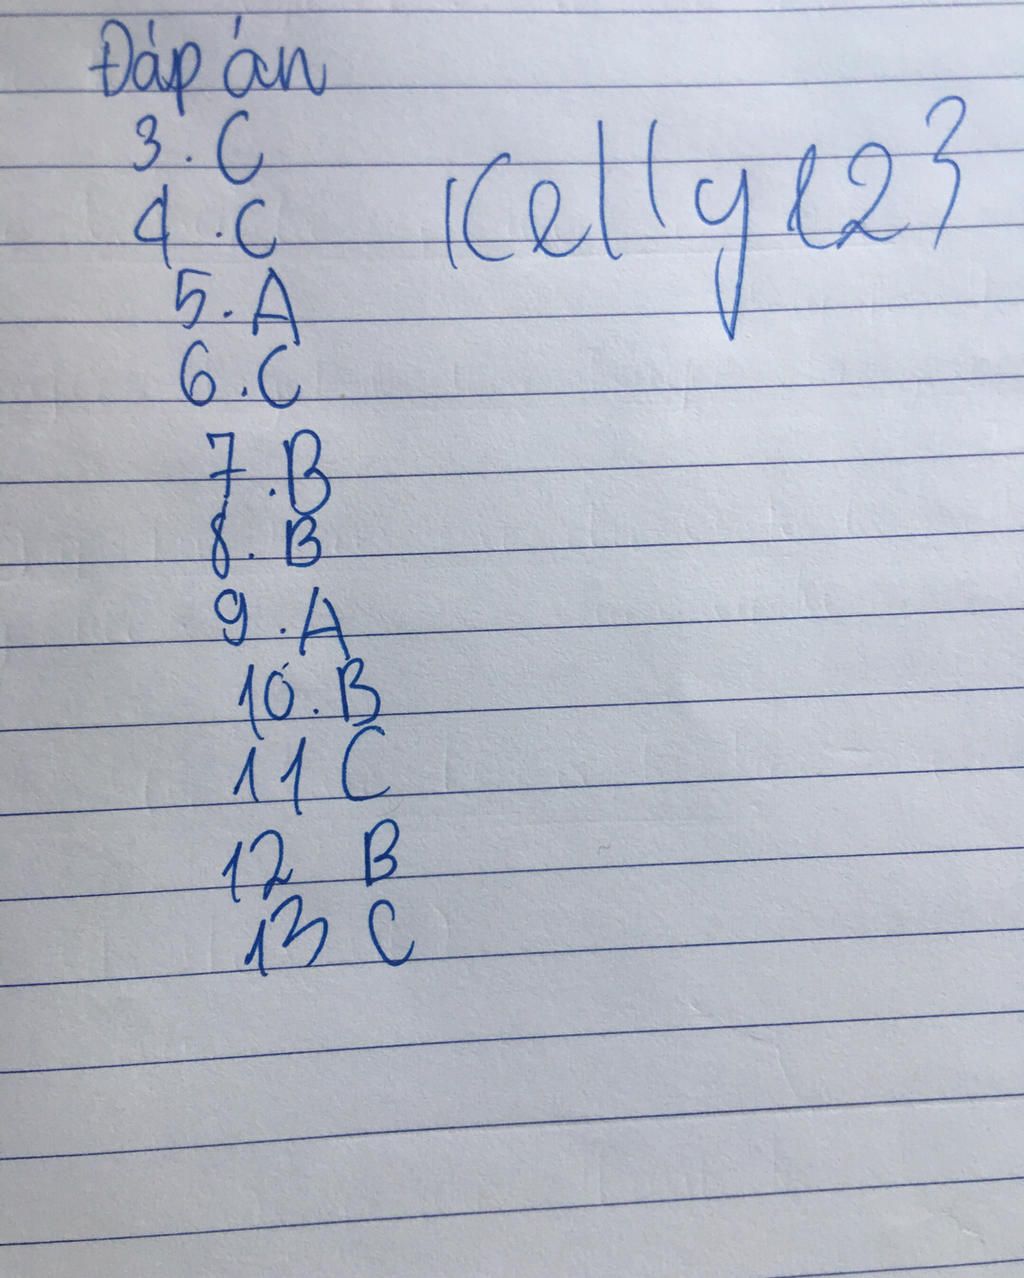 Đáp án
3. C
4. C
Kelly e23
5. A
6. C
7. B
8. B
9. A
10. B
11 C
12 B
13 C